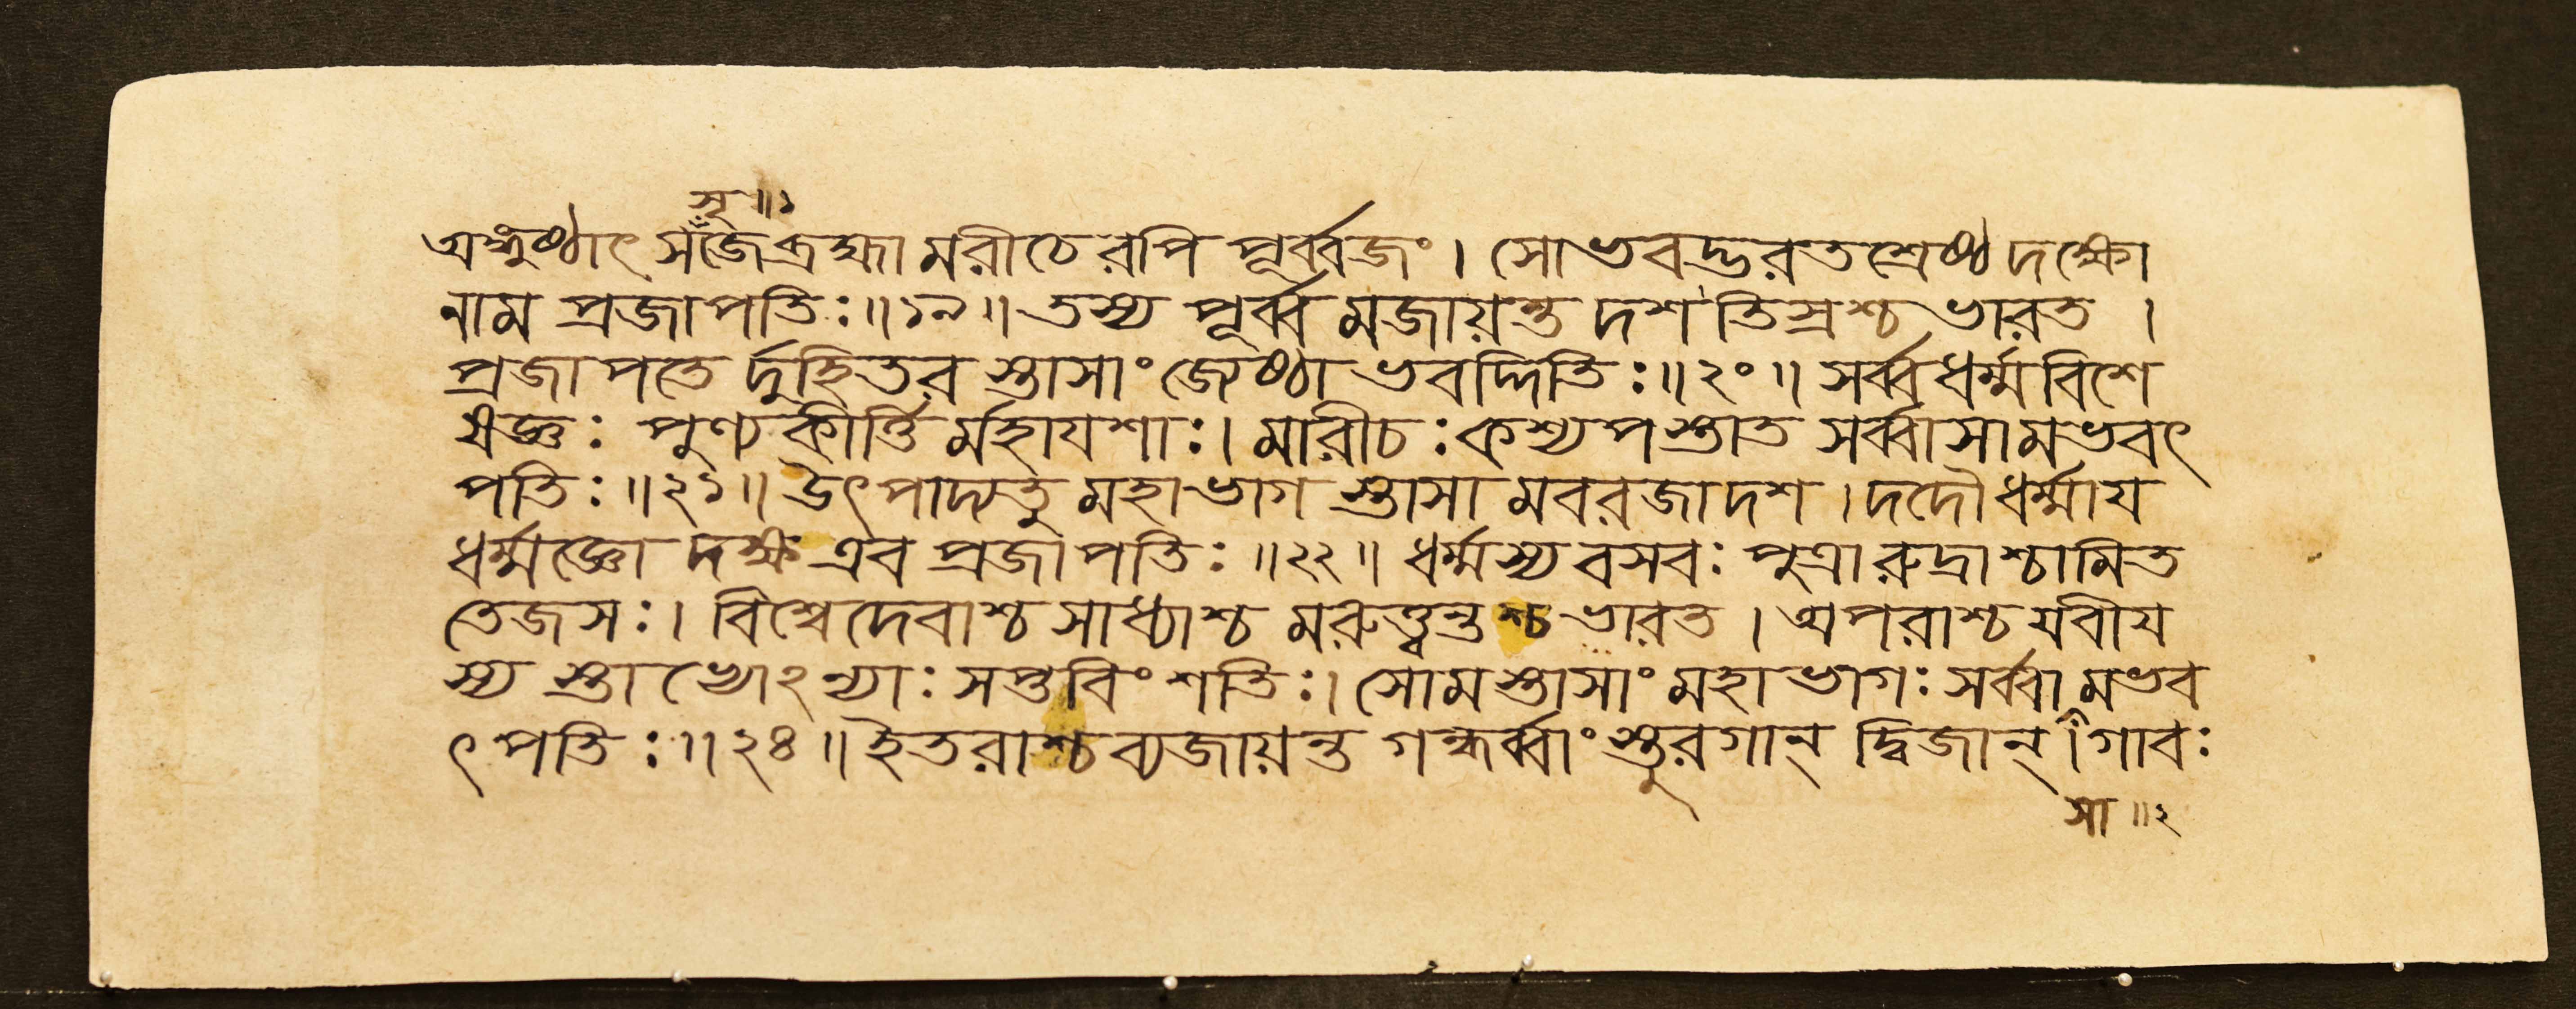 সৃ ॥১
অঙ্গুষ্ঠাৎ সঁজে ব্রহ্মা মরীচেরপি পূর্ব্বজং । সোভবদ্ভরতশ্রেষ্ঠ দক্ষো
নাম প্রজাপতিঃ ॥ ১৯ ॥ তস্য পূর্ব্বমজায়ন্ত দশ তিস্রশ্চ ভারত ।
প্রজাপতে র্দুহিতর স্তাসাং জেষ্ঠা ভবদ্দিতিঃ ॥ ২০ ॥ সর্ব্বধর্ম্মবিশে
ষজ্ঞঃ পুণ্যকীর্ত্তি র্মহাযশাঃ । মারীচঃ কশ্যপস্তাত সর্ব্বাসামভবৎ
পতিঃ ॥ ২১ ॥ উৎপাদ্যতু মহাভাগ স্তাসা মবরজা দশ । দদৌ ধর্ম্মায
ধর্ম্মজ্ঞো দক্ষ এব প্রজাপতিঃ ॥ ২২ ॥ ধর্ম্মস্য বসবঃ পুত্রা রুদ্রাশ্চামিত
তেজসঃ । বিশ্বেদেবাশ্চ সাধ্যাশ্চ মরুত্ত্বন্তশ্চ ভারত । অপরাশ্চ যবীয
স্য স্তাভ্যোঽন্যাঃ সপ্তবিংশতিঃ । সোমস্তাসাং মহাভাগঃ সর্ব্বামভব
ৎ পতিঃ ॥ ২৪ ॥ ইতরাশ্চ ব্যজায়ন্ত গন্ধর্ব্বাংস্তুরগান্ দ্বিজান্ । গাবঃ
সা ॥২